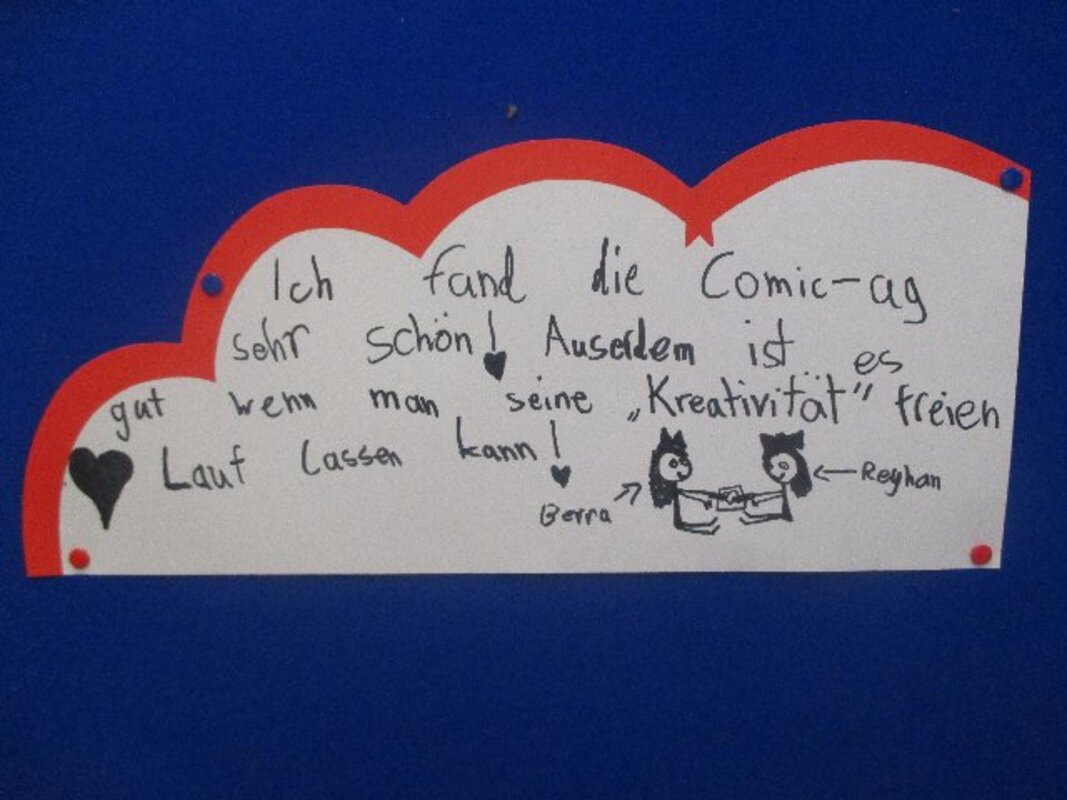 Ich fand die Comic-ag
sehr schön! Auserdem ist es
gut wenn man seine „Kreativität" freien
Lauf lassen kann!
Berra
Reyhan